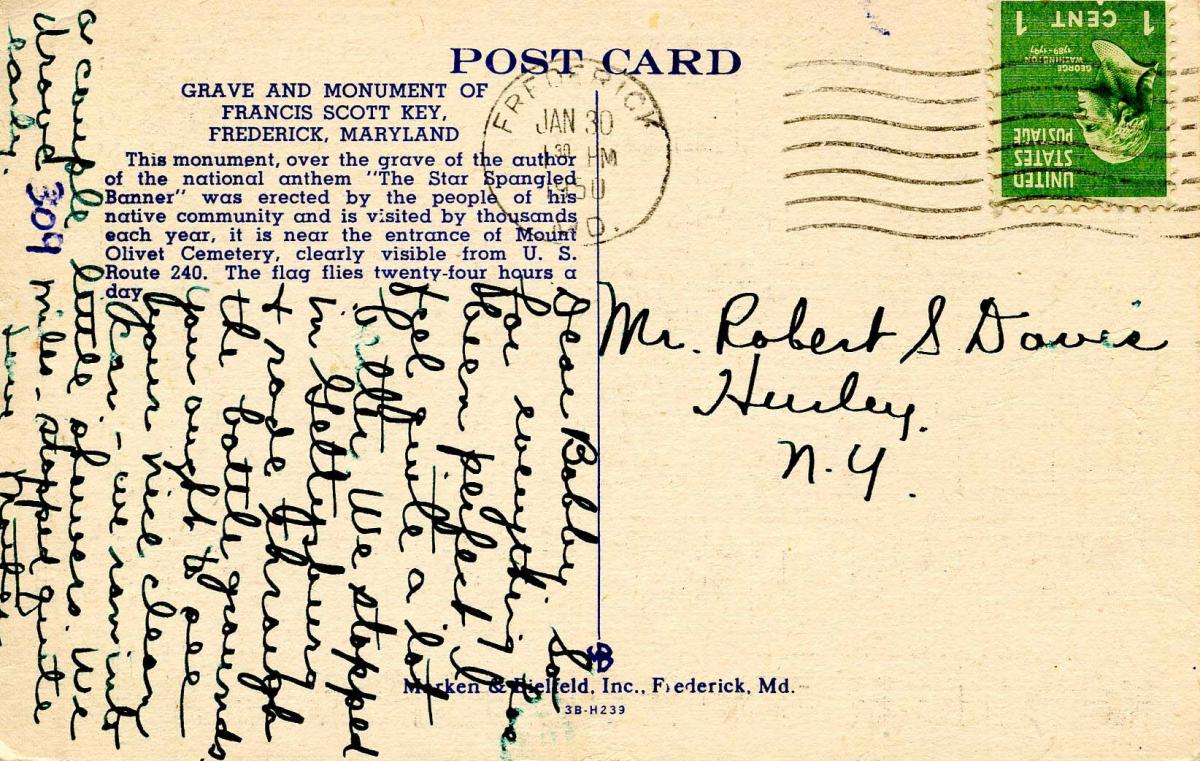 POST CARD
GRAVE AND MONUMENT OF
FRANCIS SCOTT KEY,
FREDERICK, MARYLAND
This monument, over the grave of the author
of the national anthem "The Star Spangled
Banner" was erected by the people of his
native community and is visited by thousands
each year, it is near the entrance of Mount
Olivet Cemetery, clearly visible from U. S.
Route 240. The flag flies twenty-four hours a
day.
Dear Bobby So
far everything has
been perfect I
feel quite a lot
better. We stopped
in Gettysburg
+ rode through
the battle grounds
you ought to see
your nice clean
car - we ran into
a couple little showers. We
drove 309 miles. stopped quite
early. Mother
FREDERICK
JAN 30
1 30 PM
1950
MD.
1 CENT 1
GEORGE
WASHINGTON
1789-1797
UNITED
STATES
POSTAGE
Mr. Robert S Davis
Hurley.
N.Y.
Marken & Bielfeld, Inc., Frederick, Md.
3B-H239